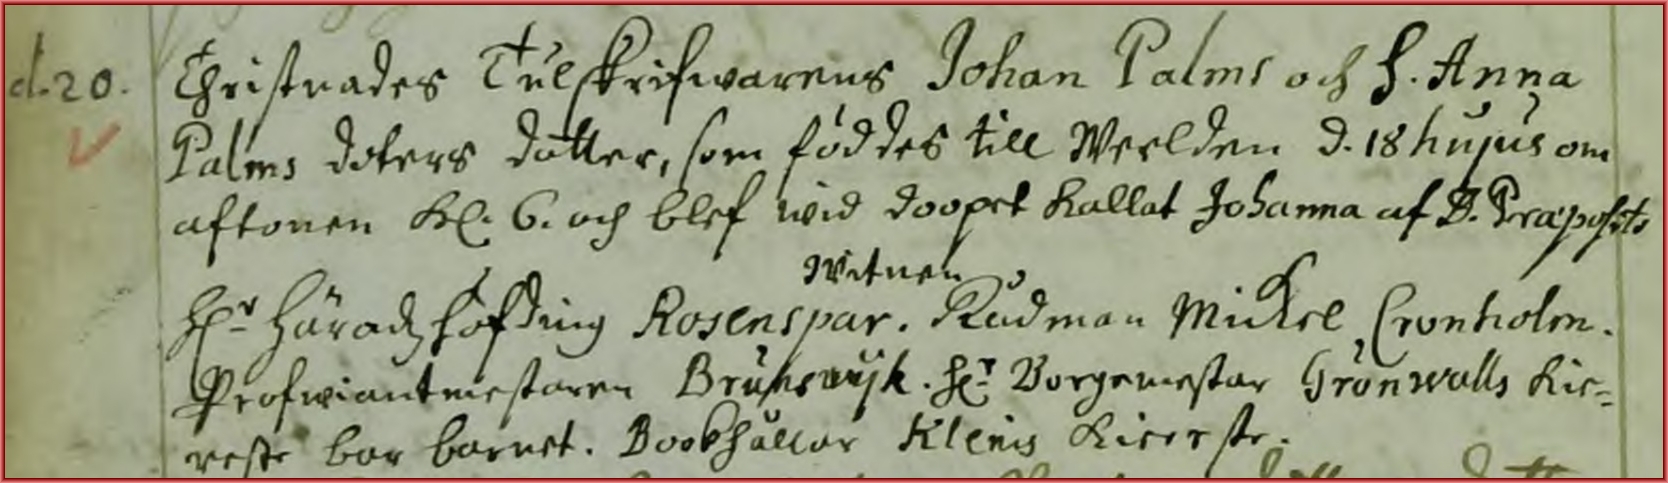 d. 20. Christnades Tulskrifwarens Johan Palms och H. Anna
Palms doters dotter, som föddes till Werlden d. 18 hujus om
aftonen Kl. 6. och blef wid doopet kallat Johanna af D. Præposito
Witnen
Hr Häradzhöfding Rosenspar. Rådman Mickel Cronholm.
Profwiantmestaren Brunswijk. Hr Borgemestar Grönwalls Kie=
reste bar barnet. Bookhållar Kleins Kiereste.